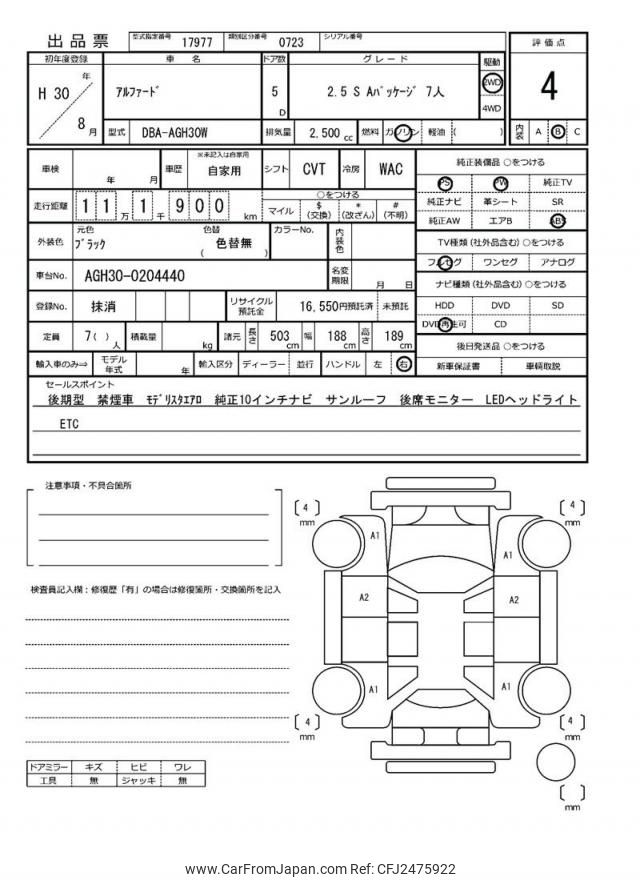 出品票 型式指定番号 17977 類別区分番号 0723 シリアル番号
評価点
4
内装 A B C
初年度登録 車名 ドア数 グレード 駆動
H 30 年 8 月 アルファード 5 D 2.5 S Aパッケージ 7人 2WD 4WD
型式 DBA-AGH30W 排気量 2,500 cc 燃料 ガソリン 軽油 ( )
車検 年 月 車歴 ※未記入は自家用 自家用 シフト CVT 冷房 WAC
走行距離 1 1 万 1 千 9 0 0 km
○をつける
マイル $ (交換) * (改ざん) # (不明)
外装色 元色 ブラック 色替 ( 色替無 ) カラーNo. 内装色
車台No. AGH30-0204440 名変期限 月 日
登録No. 抹消 リサイクル預託金 16,550円預託済 未預託
定員 7( ) 人 積載量 kg 諸元 長さ 503 cm 幅 188 cm 高さ 189 cm
輸入車のみ⇒ モデル年式 年 輸入区分 ディーラー 並行 ハンドル 左 右
純正装備品 ○をつける
PS PW 純正TV
純正ナビ 革シート SR
純正AW エアB ABS
TV種類 (社外品含む) ○をつける
フルセグ ワンセグ アナログ
ナビ種類 (社外品含む) ○をつける
HDD DVD SD
DVD再生可 CD
後日発送品 ○をつける
新車保証書 車輌取説
セールスポイント
後期型 禁煙車 モデリスタエアロ 純正10インチナビ サンルーフ 後席モニター LEDヘッドライト
ETC
注意事項・不具合箇所
検査員記入欄：修復歴「有」の場合は修復箇所・交換箇所を記入
ドアミラー キズ ヒビ ワレ
工具 無 ジャッキ 無
[ 4 ] mm
[ 4 ] mm
A1
A1
A2
A2
A1
A1
[ 4 ] mm
[ 4 ] mm
[ ] mm
www.CarFromJapan.com Ref: CFJ2475922